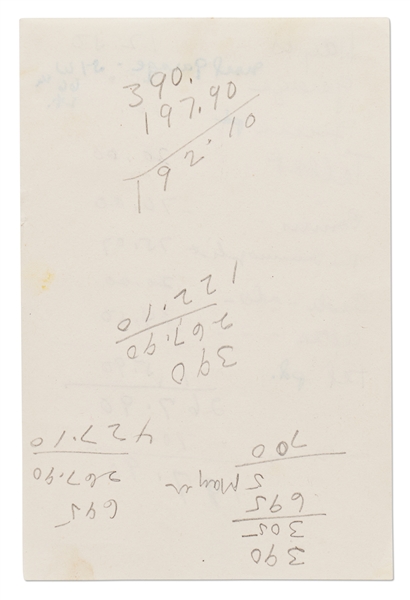 390.
197.90
192.10
390
267.90
122.10
390
305
695
5 Mayer
700
695
267.90
427.10